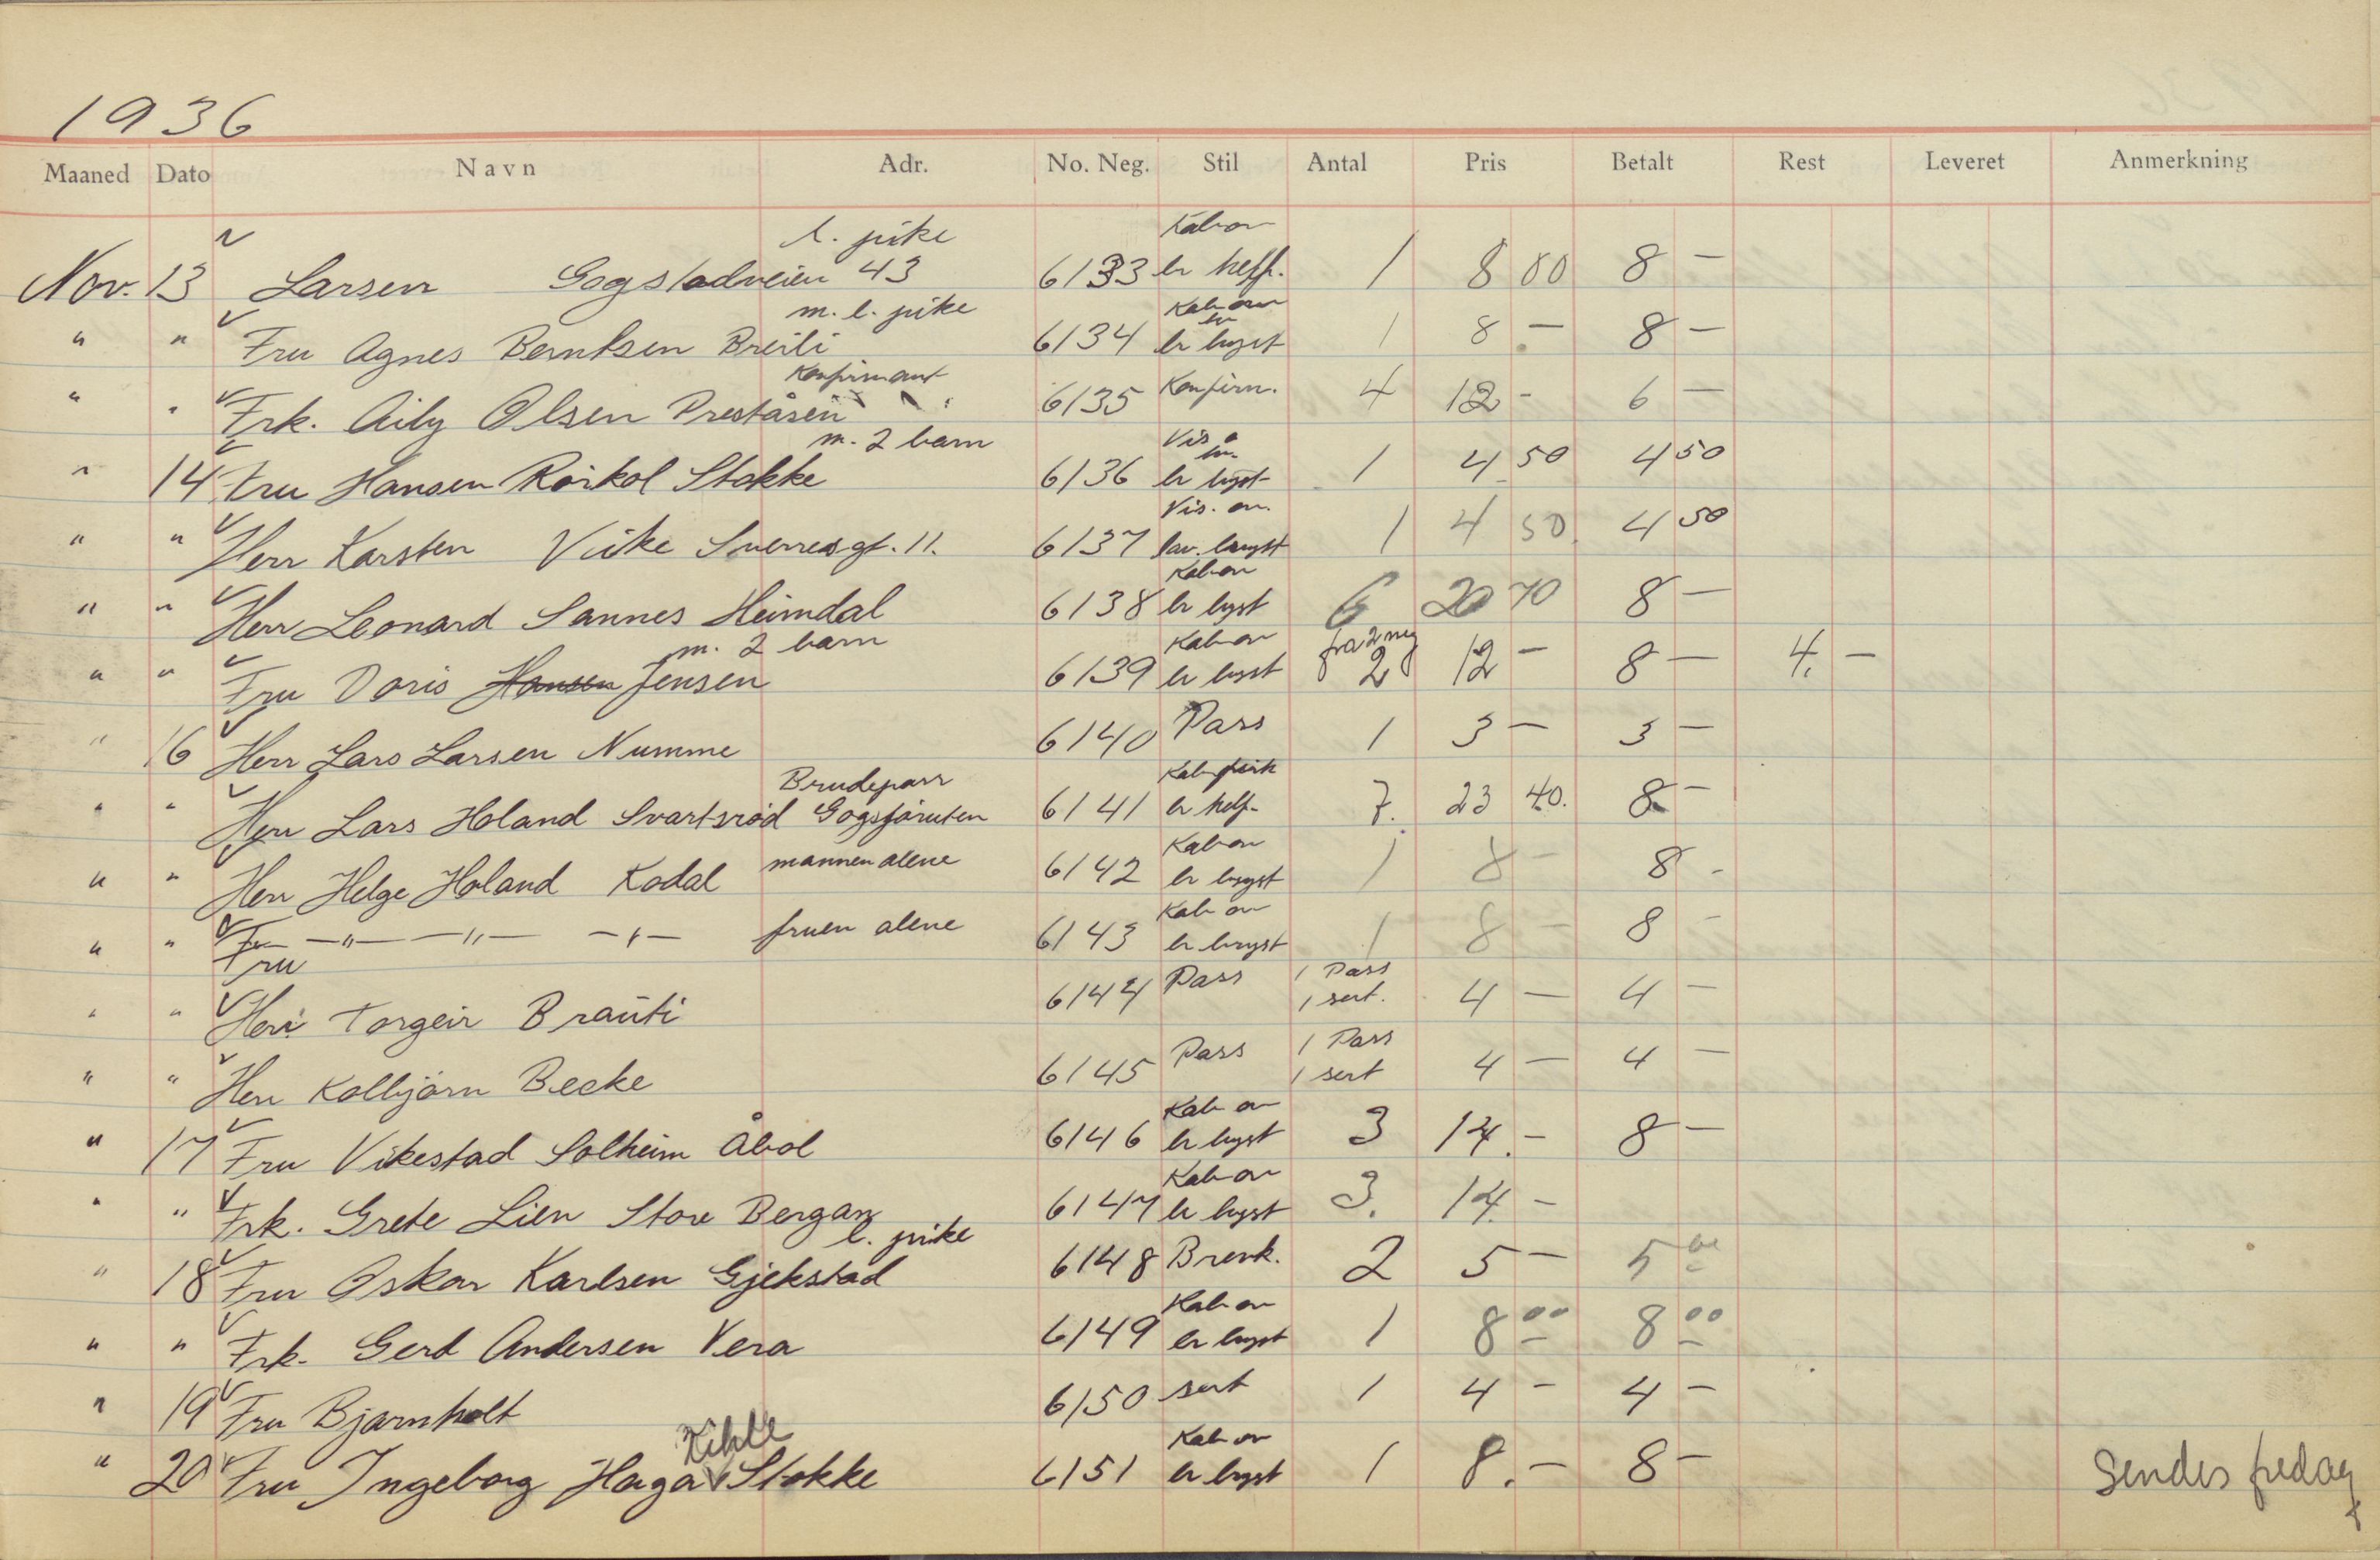 1936
Maaned Dato Navn Adr. No. Neg. Stil Antal Pris Betalt Rest Leveret Anmerkning
l. pike Kab on
Nov. 13 Larsen Gogstadveien 43 6133 br helf. 1 8 00 8 -
m. l. pike Kab on
" " Fru Agnes Berntsen Breili 6134 br bryst 1 8 - 8 -
Konfirmant
" " Frk. Aily Olsen Preståsen 6135 Konfirm. 4 12 - 6 -
m. 2 barn Vis
" 14 Fru Hansen Roirkol Stokke 6136 br bryst 1 4 50 4 50
Vis. on.
" " Herr Karsten Virke Sverresgt. 11. 6137 bryst 1 4 50 4 50
Kab on
" " Herr Leonard Sannes Heimdal 6138 br bryst 6 20 70 8 -
m. 2 barn Kab on fra 2 neg
" " Fru Doris Hansen Jensen 6139 br bryst 2 12 - 8 - 4. -
" 16 Herr Lars Larsen Numme 6140 Pass 1 3 - 3 -
Brudepar Kab
" " Herr Lars Holand Svartsrød Gogsjøruten 6141 br helf. 7. 23 40. 8 -
Kab on
" " Herr Helge Holand Kodal mannen alene 6142 br bryst 1 8 - 8 -
Kab on
" " Fru -"- -"- -"- fruen alene 6143 br bryst 1 8 - 8 -
Fru
1 Pass
" " Herr Torgeir Brauti 6144 Pass 1 sert. 4 - 4 -
1 Pass
" " Herr Kolbjørn Becke 6145 Pass 1 sert 4 - 4 -
Kab on
" 17 Fru Vikestad Solheim Åbol 6146 br bryst 3 14. - 8 -
Kab on
" " Frk. Grete Lien Store Bergan 6147 br bryst 3. 14. -
l. pike
" 18 Fru Oskar Karlsen Gjekstad 6148 Brevk. 2 5 - 5 00
Kab on
" " Frk. Gerd Andersen Vera 6149 br bryst 1 8 00 8 00
" 19 Fru Bjarnholt 6150 sert 1 4 - 4 -
Kab on
" 20 Fru Ingeborg Haga Stokke 6151 br bryst 1 8. - 8 - Sendes fredag